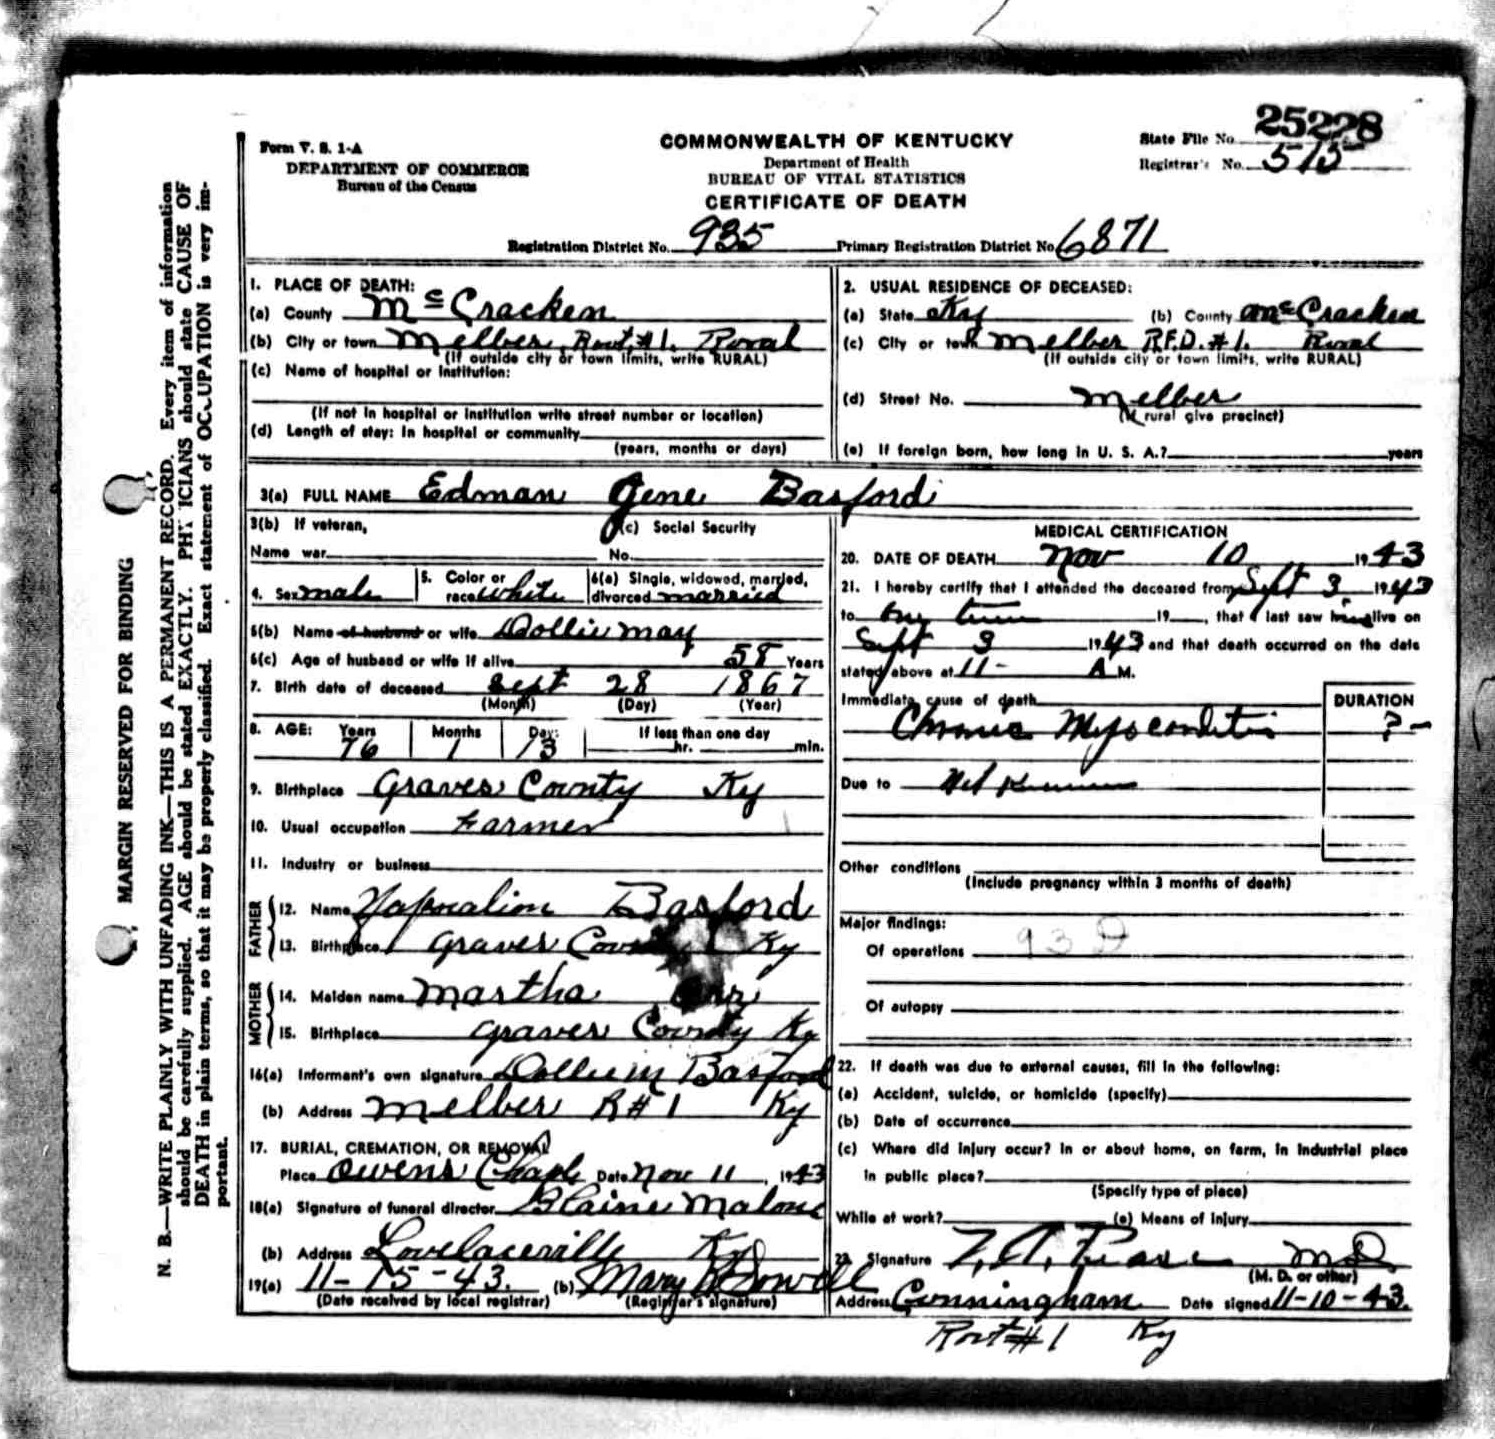 State File No. 25228
Form V. S. 1-A
COMMONWEALTH OF KENTUCKY
DEPARTMENT OF COMMERCE
Department of Health
Registrar's No. 515
Bureau of the Census
BUREAU OF VITAL STATISTICS
CERTIFICATE OF DEATH
Registration District No. 935 Primary Registration District No 6871
MARGIN RESERVED FOR BINDING
N. B.—WRITE PLAINLY WITH UNFADING INK—THIS IS A PERMANENT RECORD. Every item of information
should be carefully supplied. AGE should be stated EXACTLY. PHYSICIANS should state CAUSE OF
DEATH in plain terms, so that it may be properly classified. Exact statement of OCCUPATION is very im-
portant.
1. PLACE OF DEATH:
(a) County McCracken
(b) City or town Melber Rout #1. Rural
(If outside city or town limits, write RURAL)
(c) Name of hospital or institution:
(If not in hospital or institution write street number or location)
(d) Length of stay: In hospital or community
(years, months or days)
2. USUAL RESIDENCE OF DECEASED:
(a) State Ky (b) County McCracken
(c) City or town Melber R.F.D. #1. Rural
(If outside city or town limits, write RURAL)
(d) Street No. Melber
(If rural give precinct)
(e) If foreign born, how long in U. S. A.? years
3(a) FULL NAME Edman Gene Basford
3(b) If veteran, (c) Social Security
Name war No.
4. Sex male 5. Color or race white 6(a) Single, widowed, married, divorced married
6(b) Name of husband or wife Dollie may
6(c) Age of husband or wife if alive 58 Years
7. Birth date of deceased Sept 28 1867
(Month) (Day) (Year)
8. AGE: Years Months Days If less than one day
76 1 13 hr. min.
9. Birthplace Graves County Ky
10. Usual occupation Farmer
11. Industry or business
FATHER
12. Name Basford
13. Birthplace Graves County Ky
MOTHER
14. Maiden name Martha Orr
15. Birthplace Graves County Ky
16(a) Informant's own signature Dollie M Basford
(b) Address Melber R#1 Ky
17. BURIAL, CREMATION, OR REMOVAL
Place Owens Chapl Date Nov 11, 1943
18(a) Signature of funeral director Blaine Malone
(b) Address Lovelaceville Ky
19(a) 11-15-43. (b) Mary B Sowell
(Date received by local registrar) (Registrar's signature)
MEDICAL CERTIFICATION
20. DATE OF DEATH Nov 10 1943
21. I hereby certify that I attended the deceased from Sept 3 1943
to 19 , that I last saw him alive on
Sept 3 1943 and that death occurred on the date
stated above at 11- A M.
Immediate cause of death DURATION
Chronic Myocarditis ?-
Due to
Other conditions
(Include pregnancy within 3 months of death)
Major findings:
Of operations 93D
Of autopsy
22. If death was due to external causes, fill in the following:
(a) Accident, suicide, or homicide (specify)
(b) Date of occurrence
(c) Where did injury occur? In or about home, on farm, in industrial place
in public place?
(Specify type of place)
While at work? (e) Means of Injury
23. Signature MD
(M. D. or other)
Address Cunningham Date signed 11-10-43.
Rout #1 Ky